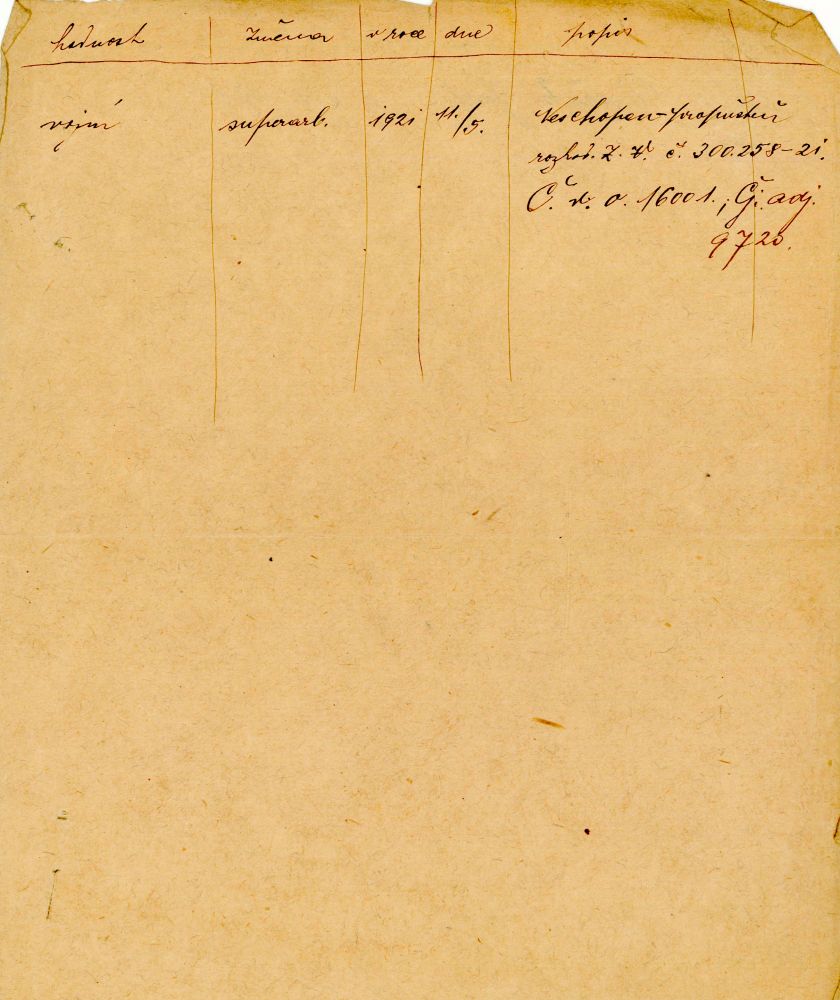 hodnost změna v roce dne popis
vojín superarb. 1921 11./5. Neschopen-propuštěn
rozhod. Z. V. č. 300.258-21.
Č. d. o. 1600 1., Č.j. adj.
9720.